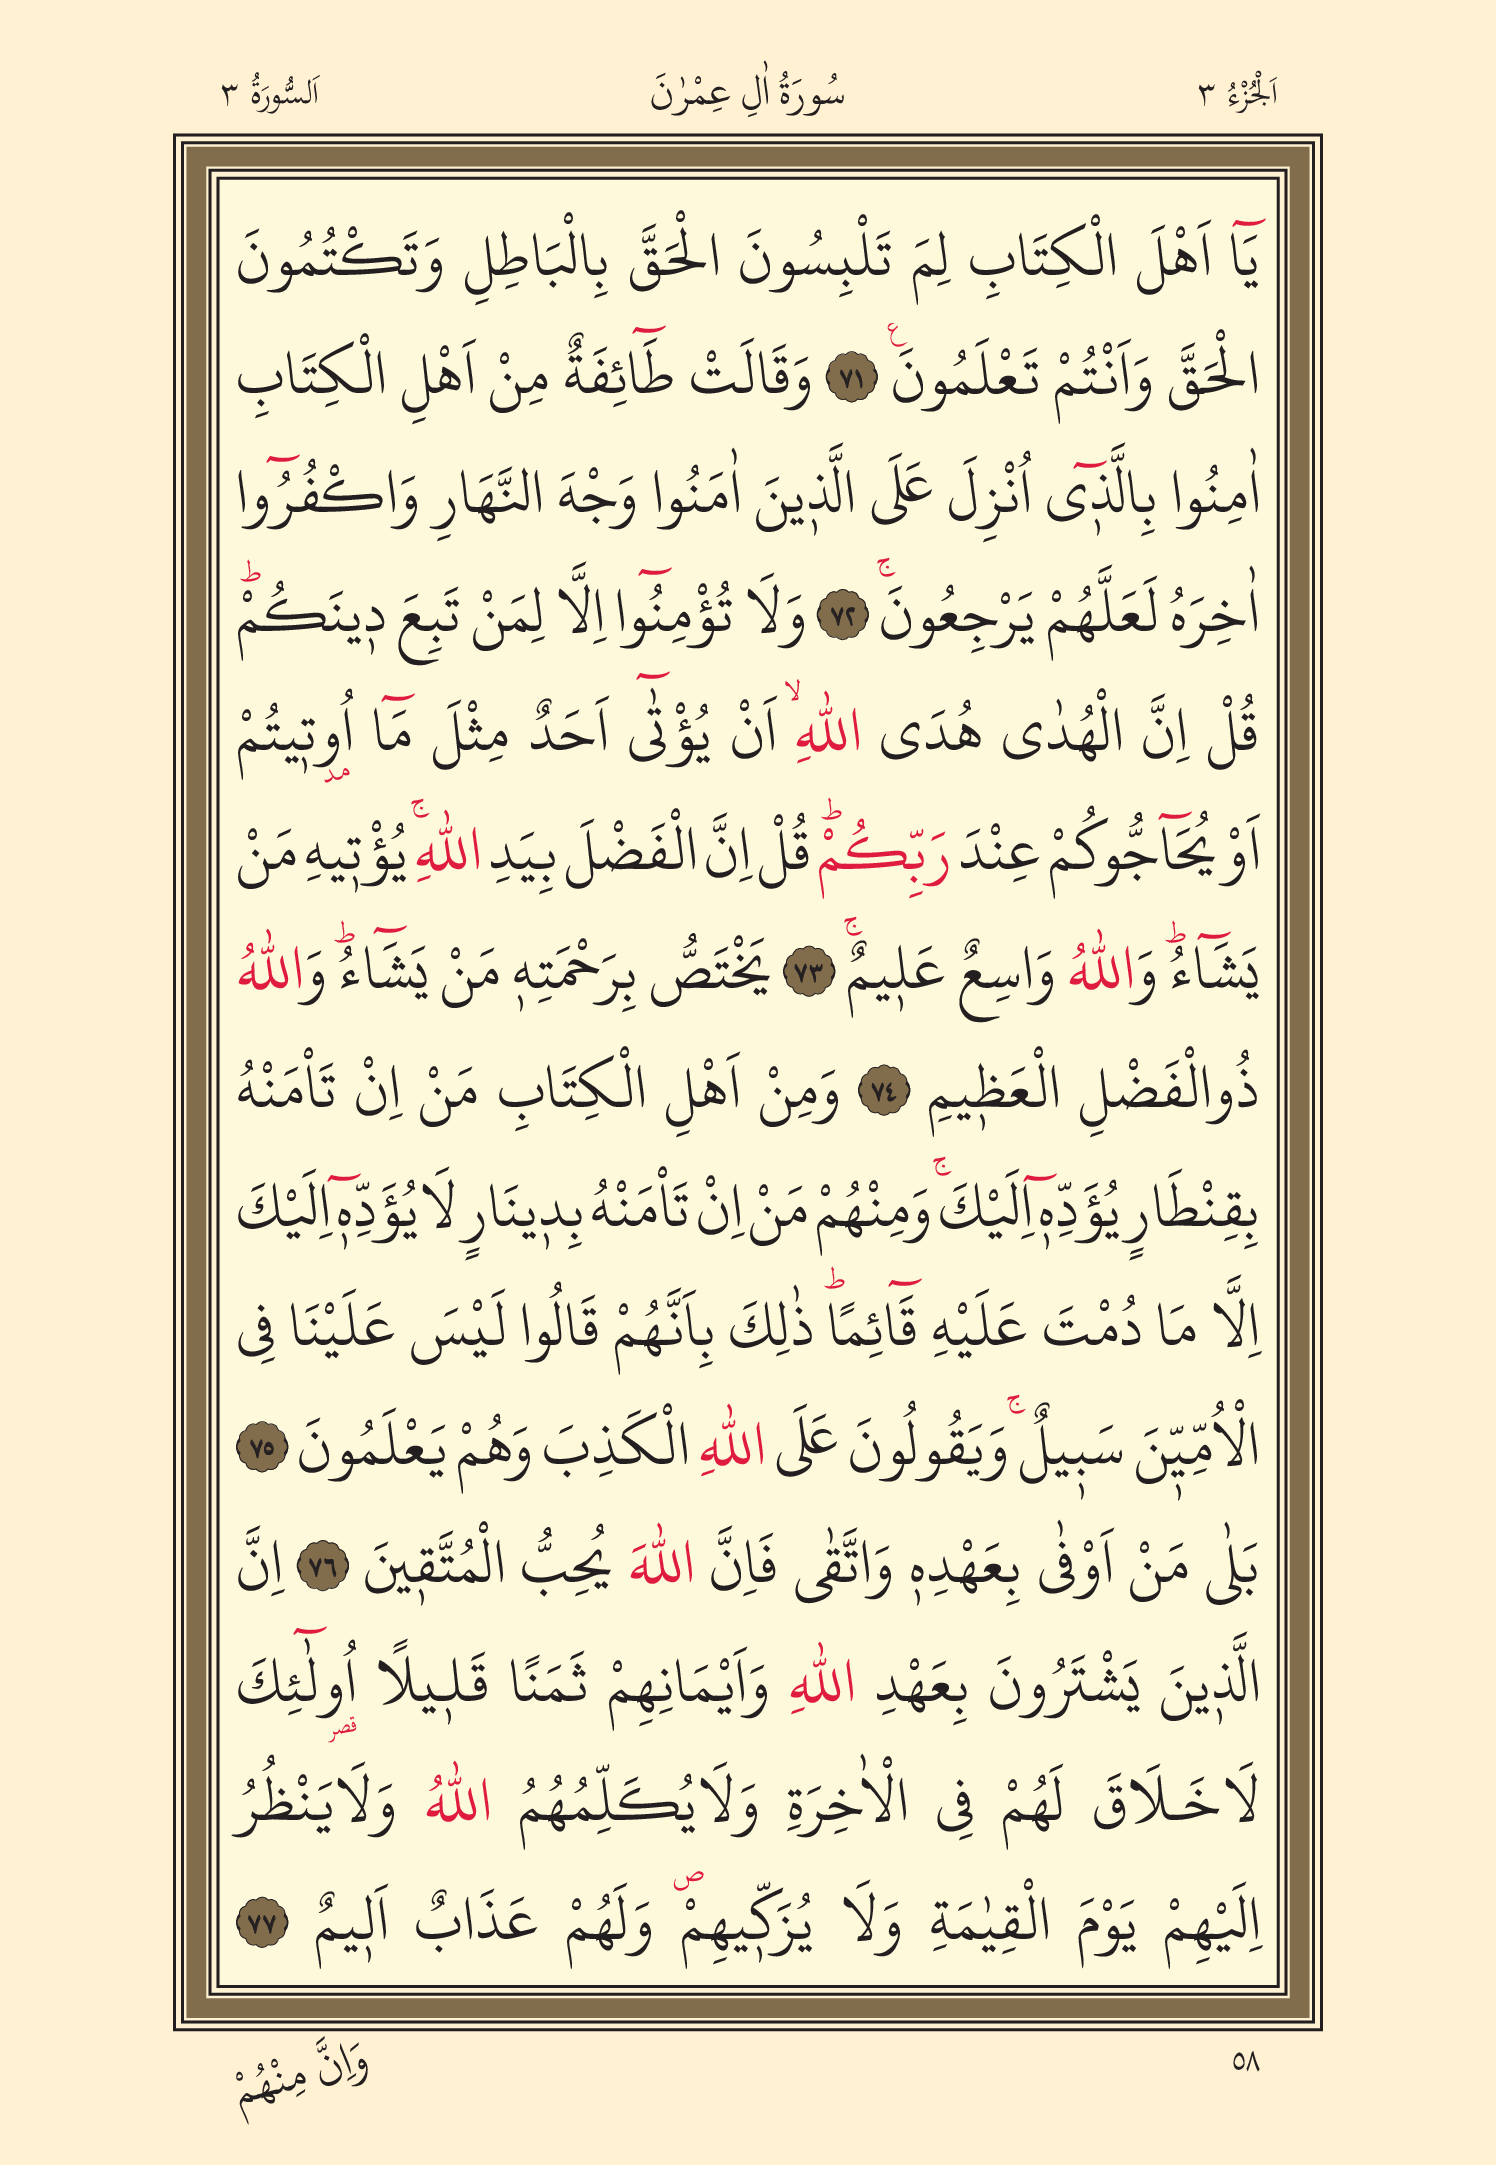 اَلْجُزْءُ ٣
سُورَةُ اٰلِ عِمْرٰنَ
اَلسُّورَةُ ٣
يَٓا اَهْلَ الْكِتَابِ لِمَ تَلْبِسُونَ الْحَقَّ بِالْبَاطِلِ وَتَكْتُمُونَ
الْحَقَّ وَاَنْتُمْ تَعْلَمُونَ ع ٧١ وَقَالَتْ طَٓائِفَةٌ مِنْ اَهْلِ الْكِتَابِ
اٰمِنُوا بِالَّذ۪ٓى اُنْزِلَ عَلَى الَّذ۪ينَ اٰمَنُوا وَجْهَ النَّهَارِ وَاكْفُرُٓوا
اٰخِرَهُ لَعَلَّهُمْ يَرْجِعُونَۚ ٧٢ وَلَا تُؤْمِنُٓوا اِلَّا لِمَنْ تَبِعَ د۪ينَكُمْۜ ط
قُلْ اِنَّ الْهُدٰى هُدَى اللّٰهِۙ اَنْ يُؤْتٰٓى اَحَدٌ مِثْلَ مَٓا اُو۫ت۪يتُمْ مد
اَوْ يُحَٓاجُّوكُمْ عِنْدَ رَبِّكُمْ ط قُلْ اِنَّ الْفَضْلَ بِيَدِ اللّٰهِۚ يُؤْت۪يهِ مَنْ
يَشَٓاءُ ط وَاللّٰهُ وَاسِعٌ عَل۪يمٌۚ ٧٣ يَخْتَصُّ بِرَحْمَتِه۪ مَنْ يَشَٓاءُ ط وَاللّٰهُ
ذُوالْفَضْلِ الْعَظ۪يمِ ٧٤ وَمِنْ اَهْلِ الْكِتَابِ مَنْ اِنْ تَاْمَنْهُ
بِقِنْطَارٍ يُؤَدِّه۪ٓ اِلَيْكَۚ وَمِنْهُمْ مَنْ اِنْ تَاْمَنْهُ بِد۪ينَارٍ لَا يُؤَدِّه۪ٓ اِلَيْكَ
اِلَّا مَا دُمْتَ عَلَيْهِ قَٓائِمًا ط ذٰلِكَ بِاَنَّهُمْ قَالُوا لَيْسَ عَلَيْنَا فِى
الْاُمِّيّ۪نَ سَب۪يلٌۚ وَيَقُولُونَ عَلَى اللّٰهِ الْكَذِبَ وَهُمْ يَعْلَمُونَ ٧٥
بَلٰى مَنْ اَوْفٰى بِعَهْدِه۪ وَاتَّقٰى فَاِنَّ اللّٰهَ يُحِبُّ الْمُتَّق۪ينَ ٧٦ اِنَّ
الَّذ۪ينَ يَشْتَرُونَ بِعَهْدِ اللّٰهِ وَاَيْمَانِهِمْ ثَمَنًا قَل۪يلًا اُولٰٓئِكَ قصر
لَا خَلَاقَ لَهُمْ فِى الْاٰخِرَةِ وَلَا يُكَلِّمُهُمُ اللّٰهُ وَلَا يَنْظُرُ
اِلَيْهِمْ يَوْمَ الْقِيٰمَةِ وَلَا يُزَكّ۪يهِمْ ص وَلَهُمْ عَذَابٌ اَل۪يمٌ ٧٧
٥٨
وَاِنَّ مِنْهُمْ